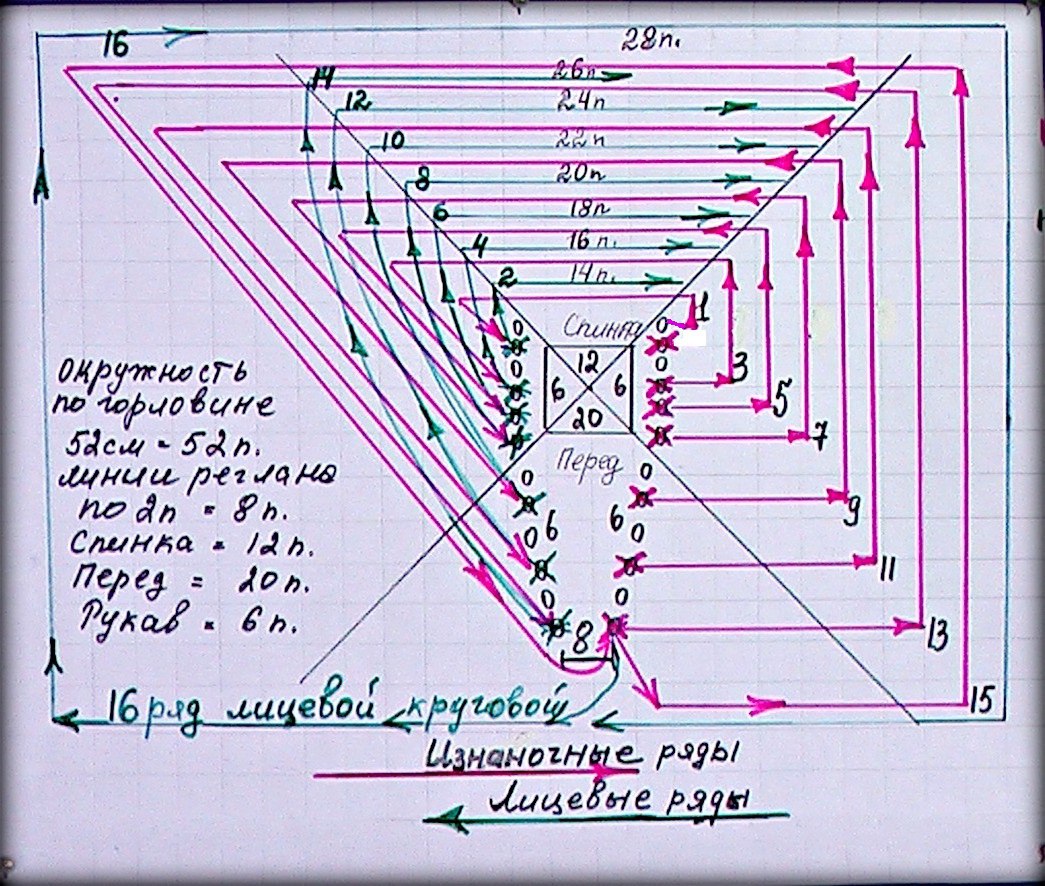 16
28п.
14
26п
12
24п
10
22п
8
20п
6
18п
4
16п.
2
14п.
1
Спинка
12
6 6
20
Перед
3
5
7
9
11
13
15
6 6
8
окружность
по горловине
52см = 52п.
линии реглана
по 2п = 8п.
Спинка = 12п.
Перед = 20п.
Рукав = 6п.
16 ряд лицевой круговой
Изнаночные ряды
Лицевые ряды